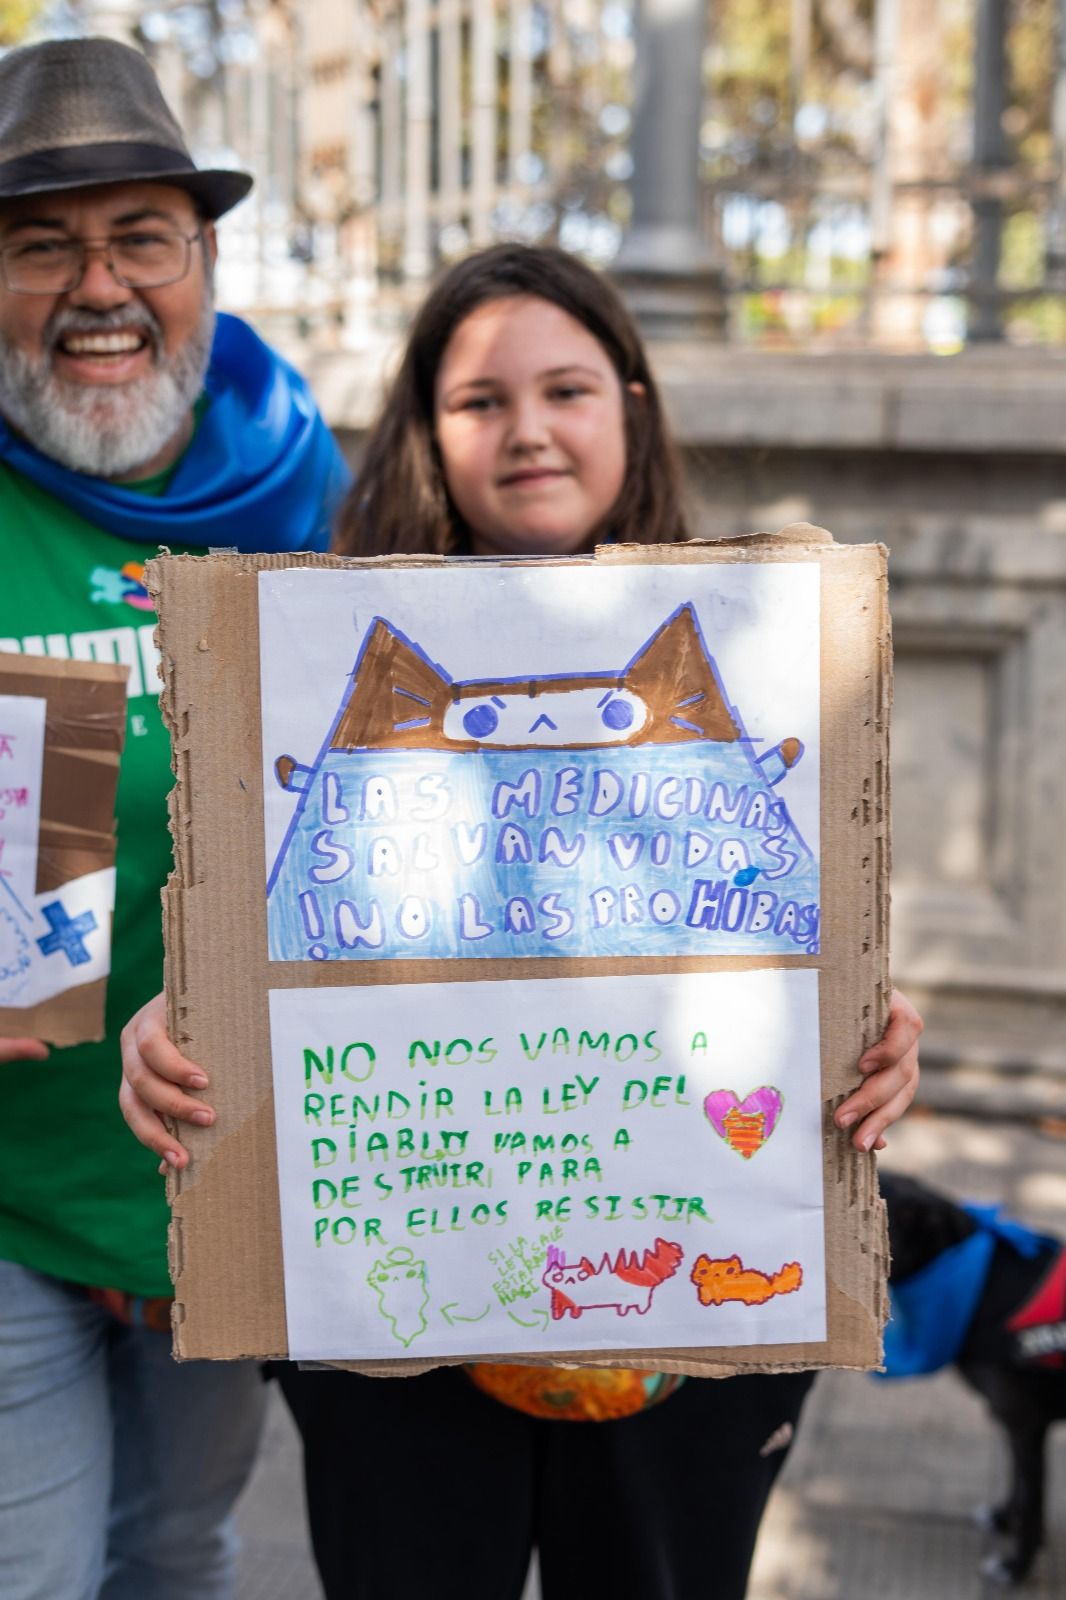 LAS MEDICINAS
SALVAN VIDAS
!NO LAS PROHÍBAS!
NO NOS VAMOS A
RENDIR LA LEY DEL
DIABLO VAMOS A
DESTRUIR PARA
POR ELLOS RESISTIR
SI LA
LEY SALE
ESTARAN